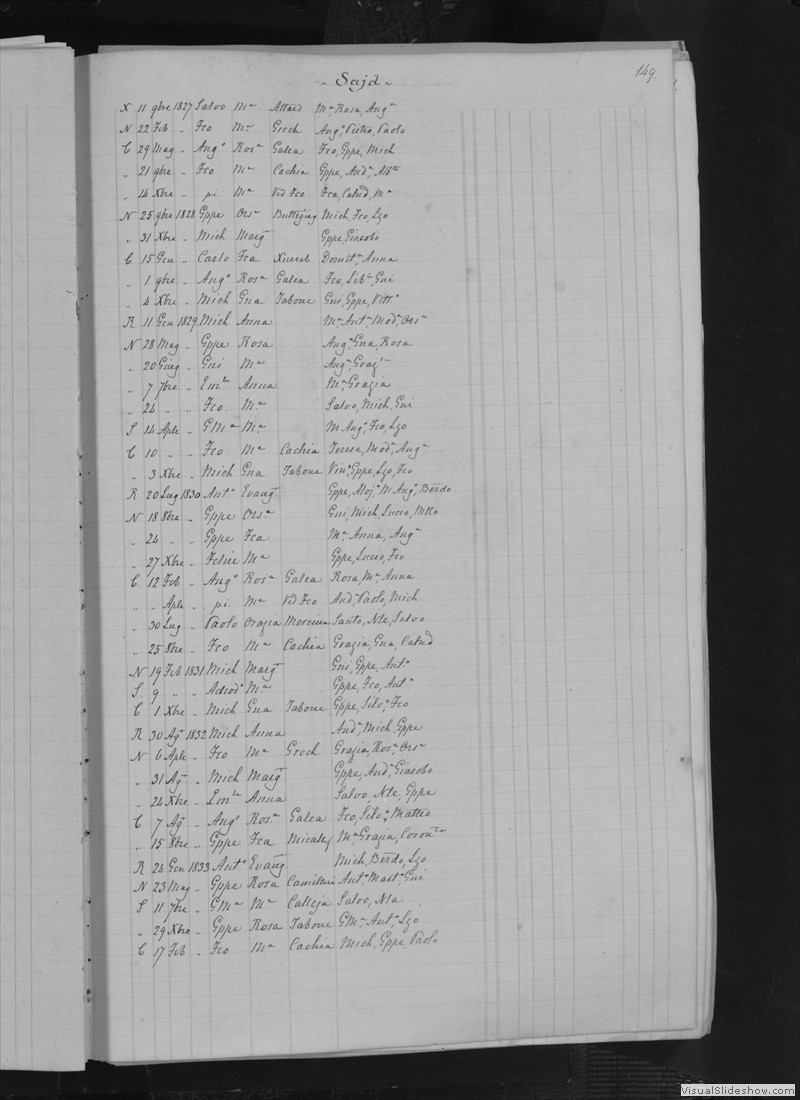 149.
Sajd
X 11 9bre 1827 Salvo Ma Attard Ma, Rosa, Anga
N 22 Feb „ Fco Ma Grech Anga, Pietro, Paolo
C 29 Mag „ Ango Rosa Galea Fco, Gppe, Mich
„ 21 9bre „ Fco Ma Cachia Gppe, Anda,
„ 14 Xbre „ pi Ma Ved Fco Fca, Catnd, Ma
N 25 9bre 1828 Gppe Orsa Buttigieg Mich, Fco, Lzo
„ 31 Xbre „ Mich Marg Gppe, Giacobo
C 15 Gen „ Carlo Fca Xuereb Anna
„ 1 9bre „ Ango Rosa Galea Fco, Gni
„ 4 Xbre „ Mich Gna Tabone Gni, Gppe, Vitto
R 11 Gen 1829 Mich Anna Ma, Anta, Moda, Orsa
N 28 Mag „ Gppe Rosa Anga, Gna, Rosa
„ 20 Giug „ Gni Ma Anga,
„ 7 7bre „ Anna Ma, Grazia
„ 24 „ „ Fco Ma Salvo, Mich, Gni
S 14 Aple „ GMa Ma M Anga, Fco, Lzo
C 10 „ „ Fco Ma Cachia Teresa, Moda, Anga
„ 3 Xbre „ Mich Gna Tabone Gppe, Lzo, Fco
R 20 Lug 1830 Anto Evang Gppe, M Anga, Berdo
N 18 8bre „ Gppe Orsa Gni, Mich, Lucio,
„ 24 „ „ Gppe Fca Ma, Anna, Anga
„ 27 Xbre „ Felice Ma Gppe, Lucio, Fco
C 12 Feb „ Ango Rosa Galea Rosa, Ma, Anna
„ „ Aple „ pi Ma Ved Fco Anda, Paolo, Mich
„ 30 Lug „ Paolo Orazia Santo, Nle, Salvo
„ 25 8bre „ Fco Ma Cachia Grazia, Gna, Catnd
N 19 Feb 1831 Mich Marg Gni, Gppe, Anto
S 9 „ „ Adeod Ma Gppe, Fco, Anto
C 1 Xbre „ Mich Gna Tabone Gppe, Silvo, Fco
R 30 Ag 1832 Mich Anna Anda, Mich, Gppe
N 6 Aple „ Fco Ma Grech Grazia, Rosa, Orsa
„ 31 Ag „ Mich Marg Gppe, Anda, Giacobo
„ 24 Xbre „ Anna Salvo, Nle, Gppe
C 7 Ag „ Ango Rosa Galea Fco, Silvo, Matteo
„ 15 8bre „ Gppe Fca Micallef Ma, Grazia,
R 24 Gen 1833 Anto Evang Mich, Berdo, Lzo
N 23 Mag „ Gppe Rosa Camilleri Anta, Gni
S 11 7bre „ GMa Ma Calleja Salvo, Nla
„ 29 Xbre „ Gppe Rosa Tabone GMa, Anta, Lzo
C 17 Feb „ Fco Ma Cachia Mich, Gppe, Paolo
VisualSlideshow.com